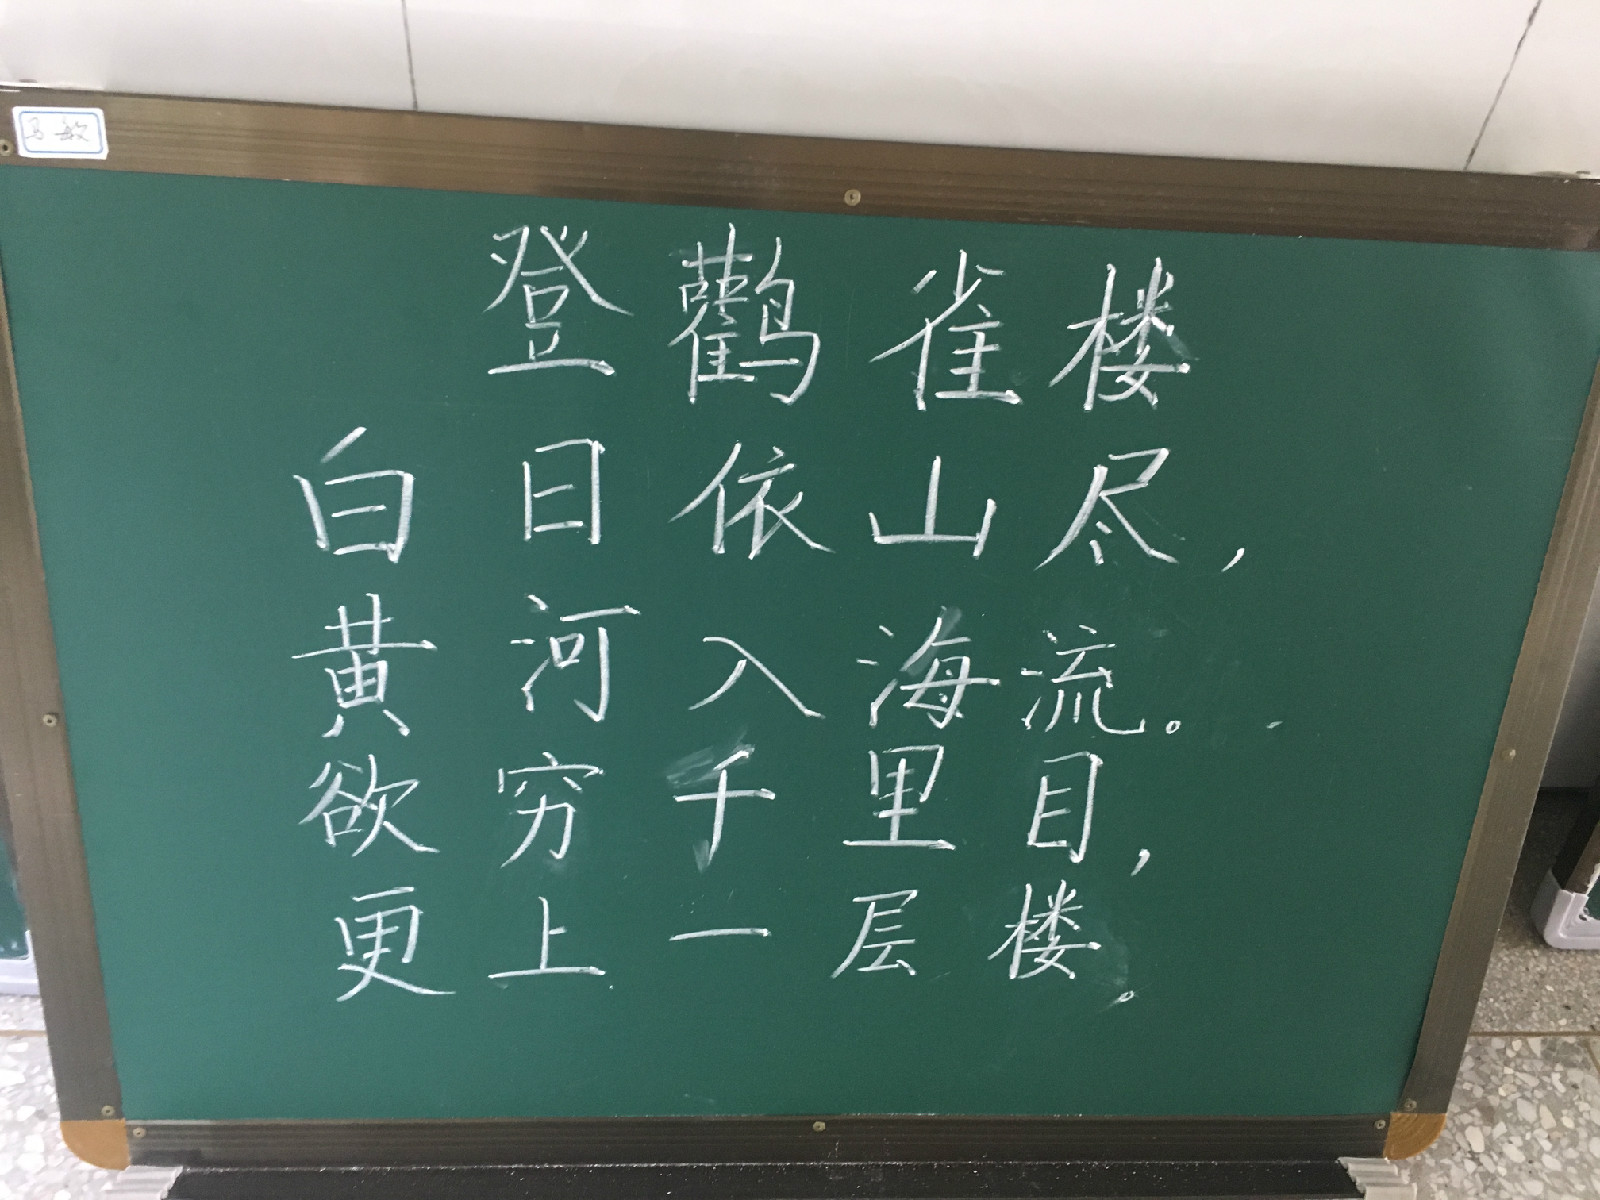 马敏
登鹳雀楼
白日依山尽，
黄河入海流。
欲穷千里目，
更上一层楼。